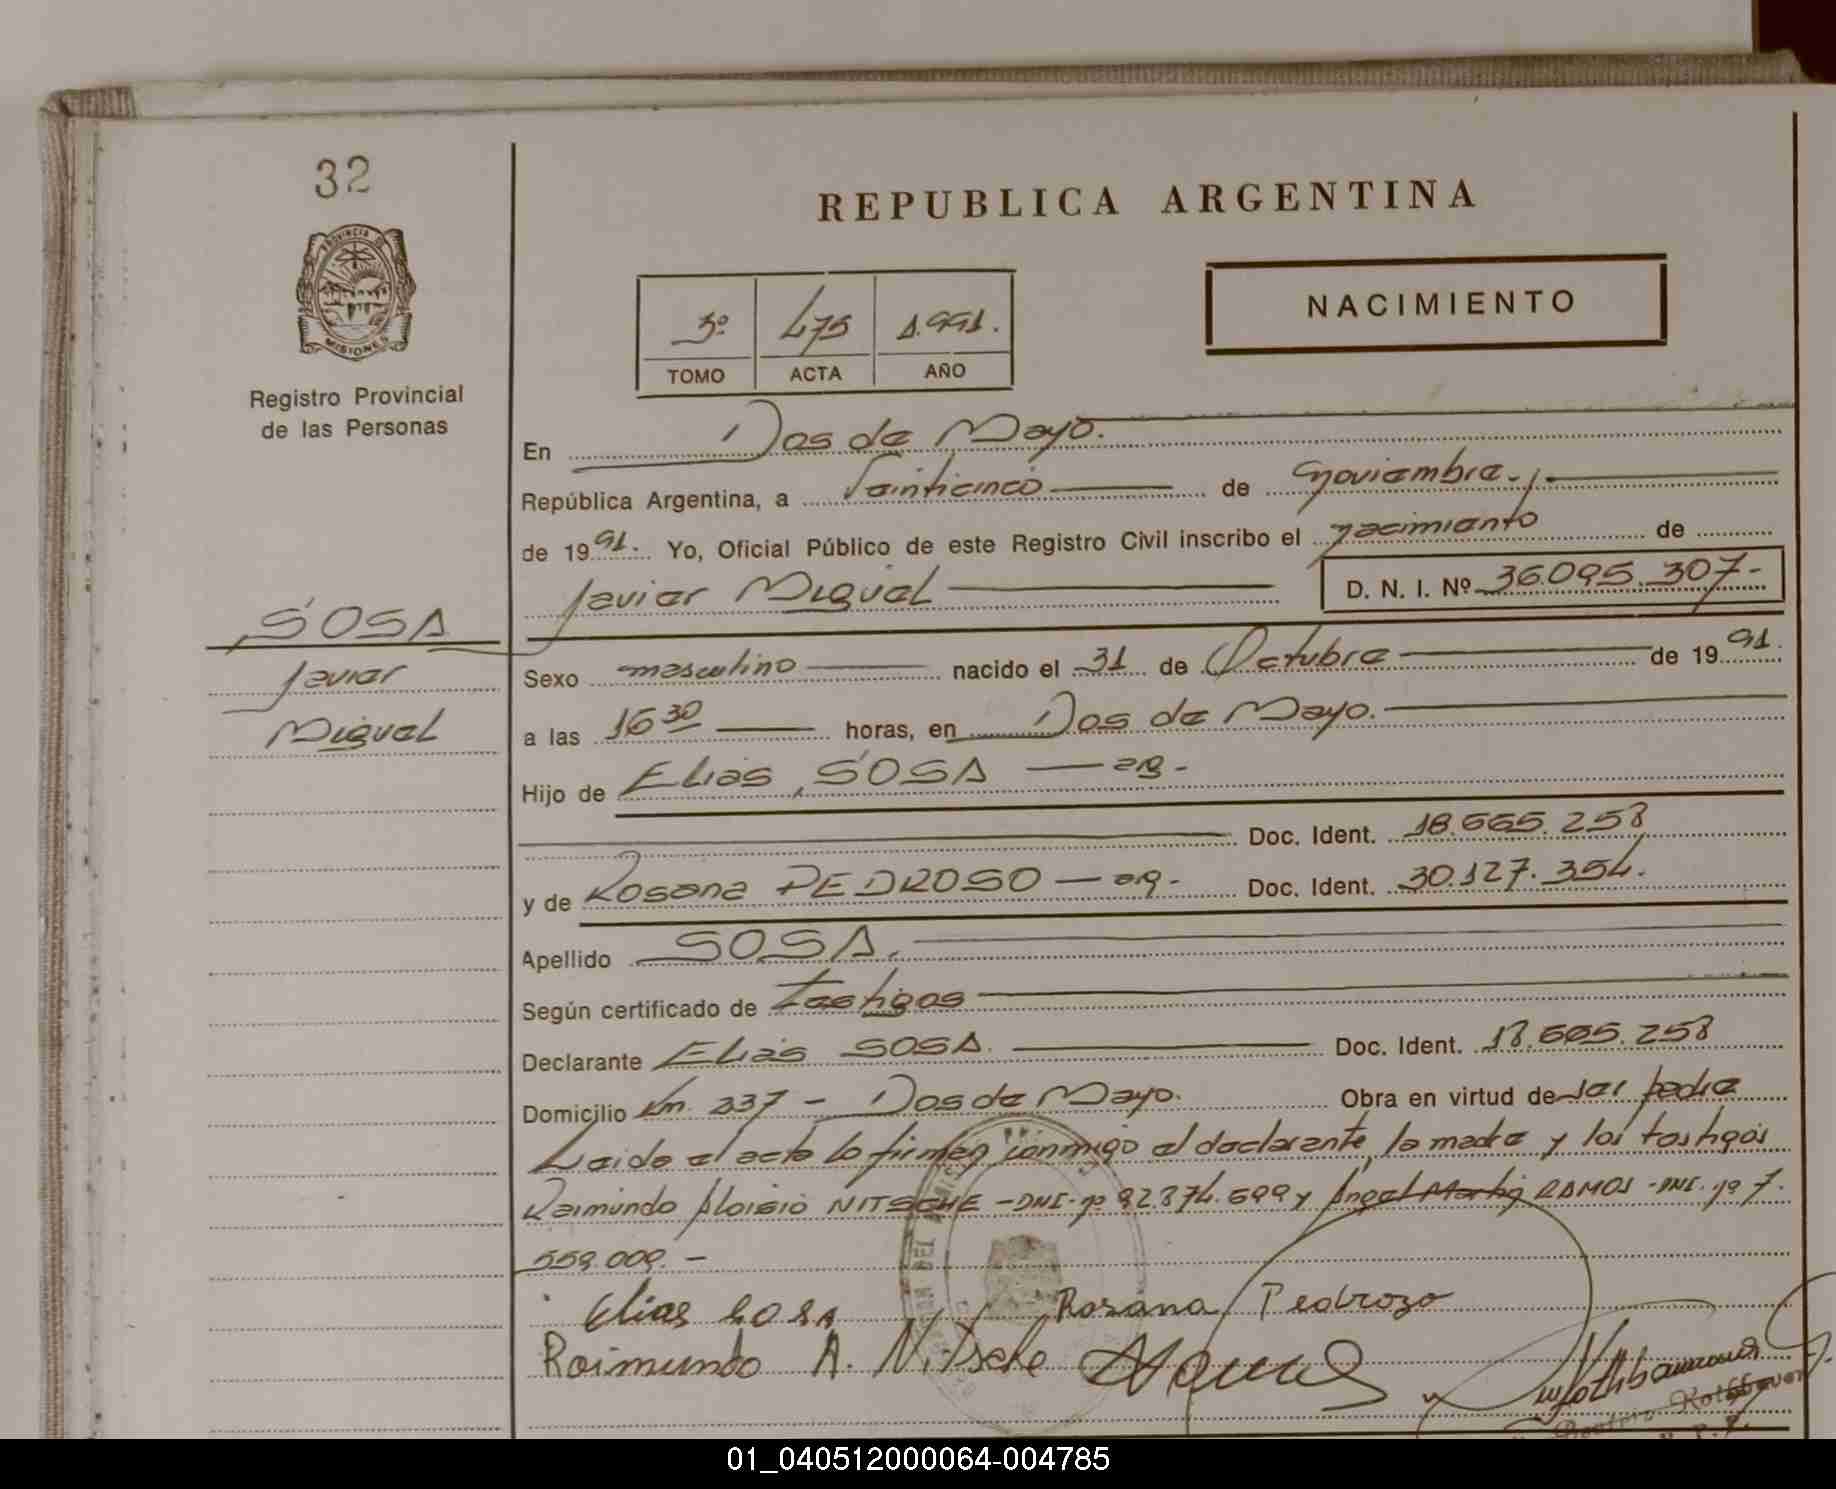 32
PROVINCIA DE
MISIONES
Registro Provincial
de las Personas
SOSA
Javier
Miguel
REPUBLICA ARGENTINA
NACIMIENTO
3º 475 1.991.
TOMO ACTA AÑO
En Dos de Mayo.
República Argentina, a Veinticinco de noviembre
de 1991. Yo, Oficial Público de este Registro Civil inscribo el nacimiento de
Javier Miguel D. N. I. Nº 36.095.307-
Sexo masculino nacido el 31 de Octubre de 1991.
a las 16 30 horas, en Dos de Mayo.
Hijo de Elias SOSA — arg-
Doc. Ident. 18.665.258
y de Rosana PEDROSO — arg- Doc. Ident. 30.127.354.
Apellido SOSA.
Según certificado de testigos
Declarante Elias SOSA. Doc. Ident. 18.665.258
Domicilio Km. 237 - Dos de Mayo. Obra en virtud de ser padre
Leida el acta lo firman conmigo el declarante, la madre y los testigos
Raimundo Aloisio NITSCHE - DNI- nº 92.874.699 y Angel Martin RAMOS - DNI. nº 7.
559.009.-
Elias Sosa Rosana Pedrozo
Raimundo A. Nitsche
01_040512000064-004785